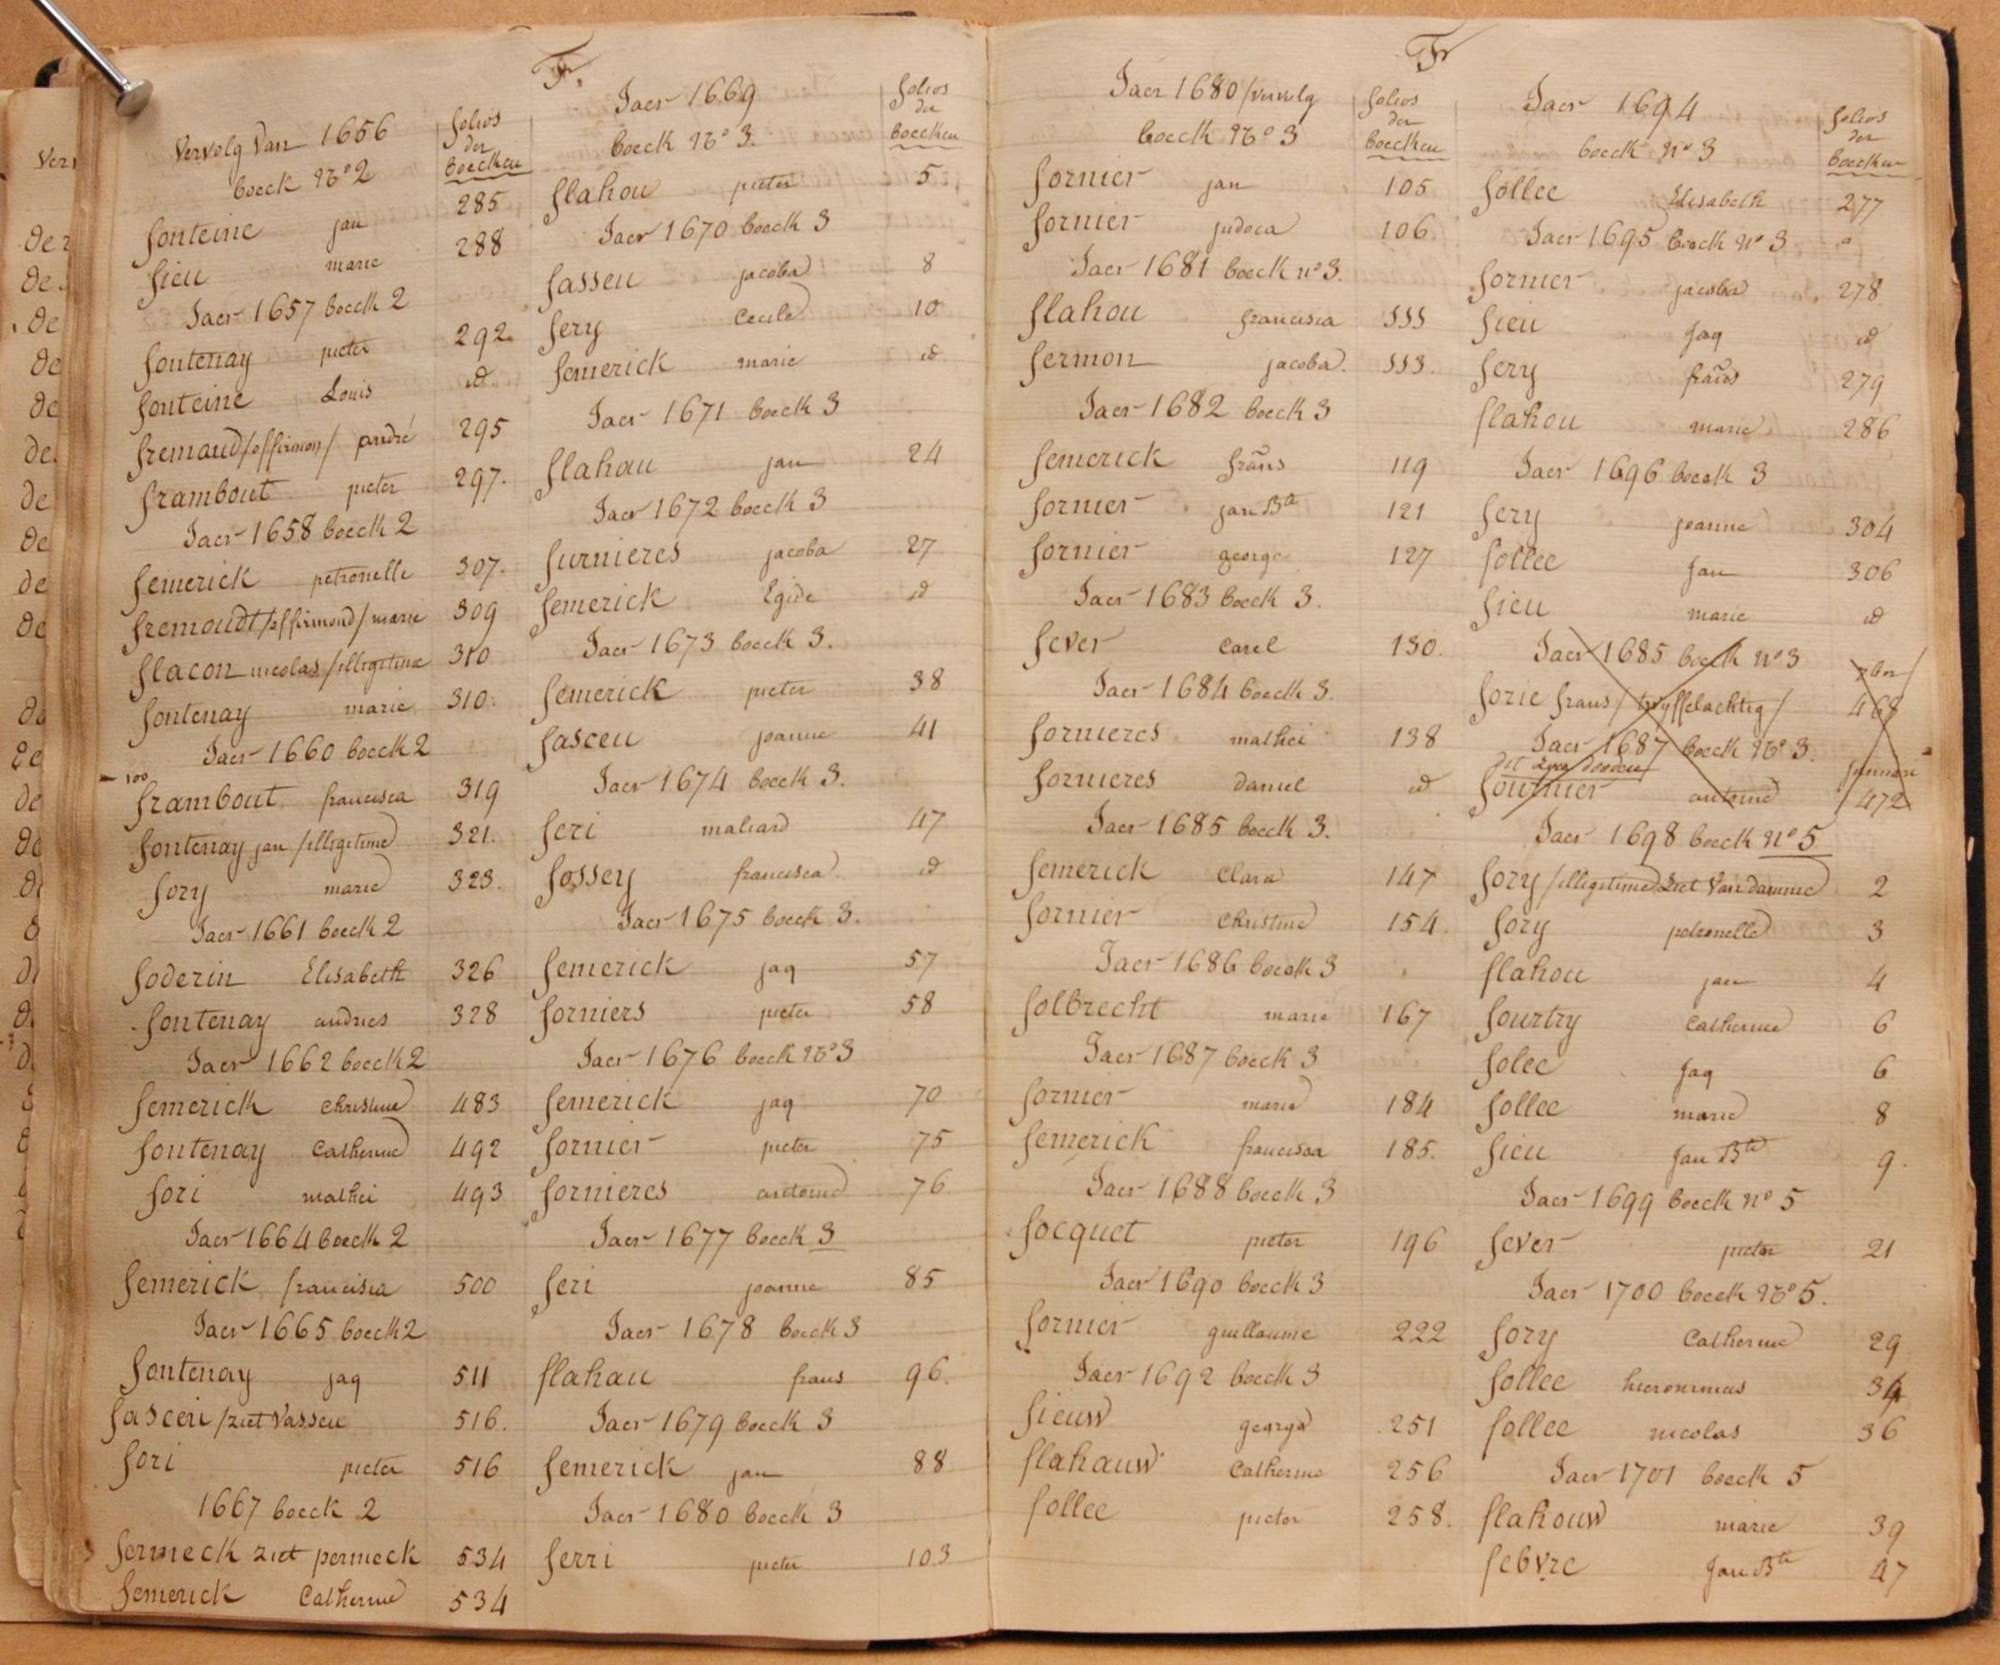 F.
Vervolg Van 1656
boeck No 2
folios
der
boecken
fonteine jan 285
fieu marie 288
Jaer 1657 boeck 2
fontenay pieter 292.
fonteine Louis id.
fremaud/offirmon/ andré 295
frambout pieter 297.
Jaer 1658 boeck 2
femerick petronelle 307.
fremoudt/offirmond/ marie 309
flacon nicolas /illegitime 310
fontenay marie 310.
Jaer 1660 boeck 2
100
frambout francisca 319
fontenay jan /illigitime 321.
fory marie 323.
Jaer 1661 boeck 2
foderin Elisabeth 326
fontenay andries 328
Jaer 1662 boeck 2
femerick christine 483
fontenay Catherine 492
fori mathei 493
Jaer 1664 boeck 2
femerick francisca 500
Jaer 1665 boeck 2
fontenay jaq 511
fasceu /ziet Vasseu 516.
fori pieter 516
1667 boeck 2
fermeck ziet permeck 534
femerick Catherine 534
Jaer 1669
boeck No 3.
folios
der
boecken
flahou pieter 5
Jaer 1670 boeck 3
fasseu jacoba 8
fery Cecile 10
femerick marie id
Jaer 1671 boeck 3
flahau jan 24
Jaer 1672 boeck 3
furnieres jacoba 27
femerick Egide id
Jaer 1673 boeck 3.
femerick pieter 38
fasceu joanne 41
Jaer 1674 boeck 3.
feri 47
fossey francisca id
Jaer 1675 boeck 3.
femerick jaq 57
forniers pieter 58
Jaer 1676 boeck No 3
femerick jaq 70
fornier pieter 75
fornieres antoine 76
Jaer 1677 boeck 3
feri joanne 85
Jaer 1678 boeck 3
flahau frans 96.
Jaer 1679 boeck 3
femerick jan 88
Jaer 1680 boeck 3
ferri pieter 103
F
Jaer 1680/vervolg
boeck No 3
folios
der
boecken
fornier jan 105
fornier judoca 106
Jaer 1681 boeck no 3.
flahou francisca 111
fermon jacoba. 113.
Jaer 1682 boeck 3
femerick frans 119
fornier jan Bte 121
fornier george 127
Jaer 1683 boeck 3.
fever Carel 130.
Jaer 1684 boeck 3.
fornieres mathei 138
fornieres Daniel id
Jaer 1685 boeck 3.
femerick Clara 147
fornier Christine 154.
Jaer 1686 boeck 3
folbrecht marie 167
Jaer 1687 boeck 3
fornier marie 184
femerick francisca 185.
Jaer 1688 boeck 3
focquet pieter 196
Jaer 1690 boeck 3
fornier guillaume 222
Jaer 1692 boeck 3
fieuw george 251
flahauw Catherine 256
follee pieter 258.
Jaer 1694
boeck No 3
folios
der
boecken
follee Elisabeth 277
Jaer 1695 boeck No 3
fornier jacoba 278
fieu Jaq id
fery frans 279
flahou marie 286
Jaer 1696 boeck 3
fery joanne 304
follee Jan 306
fieu marie id
Jaer 1685 boeck no 3
forie frans / twyffelachtig / 468
Jaer 1687 boeck No 3.
fournier antoine 472
Jaer 1698 boeck No 5
fory /illigitime Ziet Van damme 2
fory petronelle 3
flahou jan 4
fourtry Catherine 6
folee Jaq 6
follee marie 8
fieu Jan Bte 9.
Jaer 1699 boeck No 5
fever pieter 21
Jaer 1700 boeck No 5.
fory Catherine 29
follee hieronimus
follee nicolas 36
Jaer 1701 boeck 5
flahouw marie 39
febvre Jan Bte 47